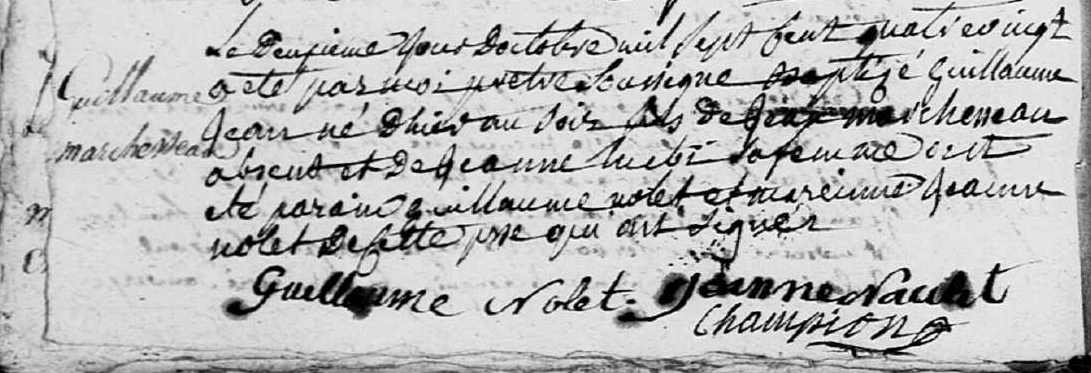 Le Deuxieme Jour Doctobre mil sept Cent quatre vingt
Guillaume
a eté par moi pretre Soussigne Baptizé Guillaume
marchesseau
Jean né Dhier au soir fils de Jean marchesseau
absent et De Jeanne sa femme ont
eté parain guillaume nolet et mareinne Jeanne
nolet De Cette psse qui ont Signer
Guillaume Nolet. Jeanne
Champion